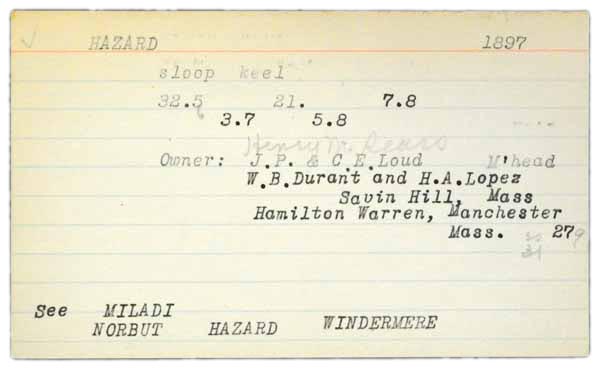 ✓ HAZARD 1897
sloop keel
32.5 21. 7.8
3.7 5.8
Henry M. Sears
Owner: J.P. & C.E.Loud M'head
W.B.Durant and H.A.Lopez
Savin Hill, Mass
Hamilton Warren, Manchester
Mass. 279
31
See MILADI
NORBUT HAZARD WINDERMERE